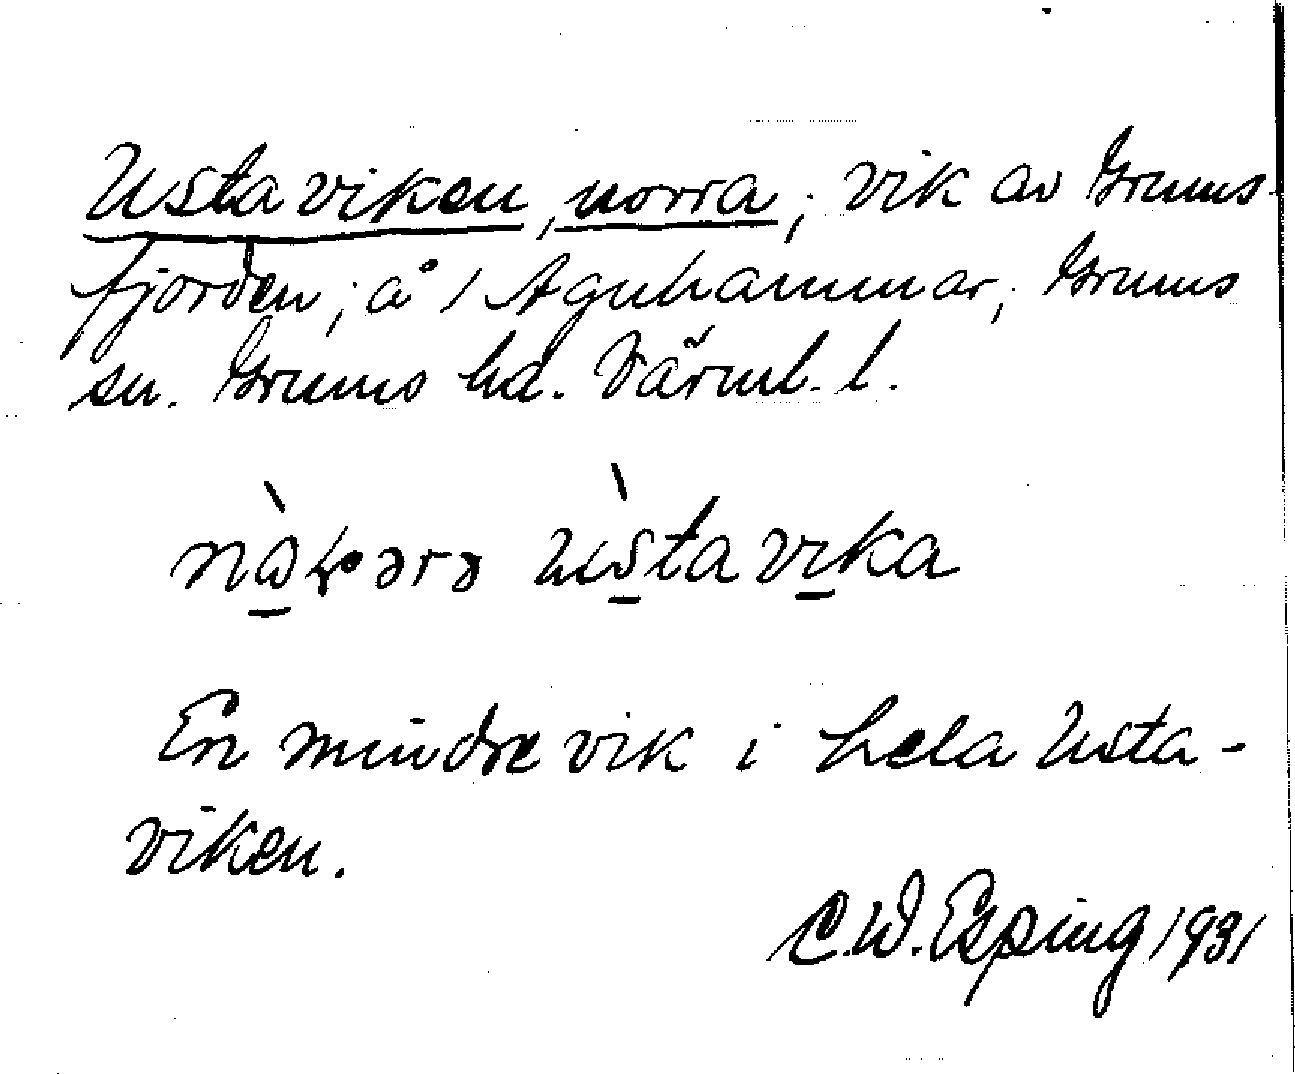 Ustaviken, norra; vik av Grums-
fjorden; å 1 Agnhammar; Grums
sn. Grums hd. Värml. l.
ustavika
En mindre vik i hela Usta-
viken.
C.W. Esping 1931